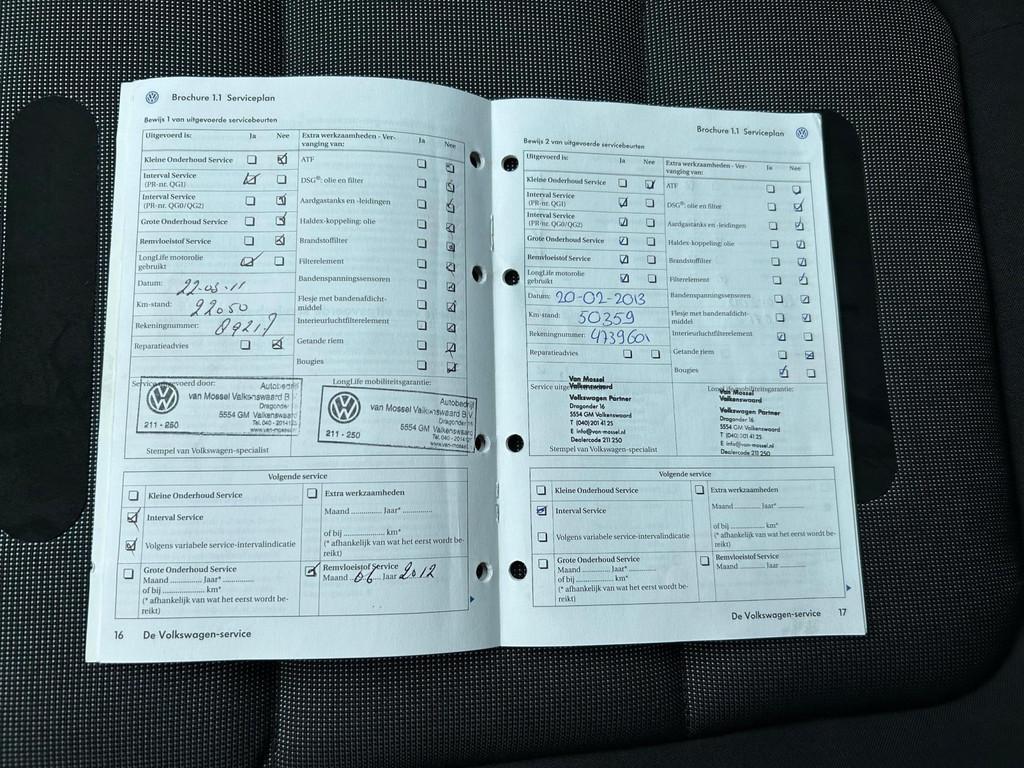 Brochure 1.1 Serviceplan
Bewijs 1 van uitgevoerde servicebeurten
Uitgevoerd is: Ja Nee
Kleine Onderhoud Service
Interval Service
(PR-nr. QG1)
Interval Service
(PR-nr. QG0/QG2)
Grote Onderhoud Service
Remvloeistof Service
LongLife motorolie
gebruikt
Datum: 22-03-11
Km-stand: 22050
Rekeningnummer: 89217
Reparatieadvies
Extra werkzaamheden - Ver-
vanging van: Ja Nee
ATF
DSG®: olie en filter
Aardgastanks en -leidingen
Haldex-koppeling: olie
Brandstoffilter
Filterelement
Bandenspanningssensoren
Flesje met bandenafdicht-
middel
Interieurluchtfilterelement
Getande riem
Bougies
Service uitgevoerd door:
Autobedrijf
van Mossel Valkenswaard B.V.
Dragonder 16
5554 GM Valkenswaard
Tel. 040 - 2014125
211 - 250
LongLife mobiliteitsgarantie:
Autobedrijf
van Mossel Valkenswaard B.V.
Dragonder 16
5554 GM Valkenswaard
211 - 250
Stempel van Volkswagen-specialist
Volgende service
Kleine Onderhoud Service
Interval Service
Volgens variabele service-intervalindicatie
Grote Onderhoud Service
Maand ............ Jaar* ..............
of bij .............. km*
(* afhankelijk van wat het eerst wordt be-
reikt)
Extra werkzaamheden
Maand ............ Jaar* ............
of bij .............. km*
(* afhankelijk van wat het eerst wordt be-
reikt)
Remvloeistof Service
Maand 06 Jaar 2012
16 De Volkswagen-service
Brochure 1.1 Serviceplan
Bewijs 2 van uitgevoerde servicebeurten
Uitgevoerd is: Ja Nee
Kleine Onderhoud Service
Interval Service
(PR-nr. QG1)
Interval Service
(PR-nr. QG0/QG2)
Grote Onderhoud Service
Remvloeistof Service
LongLife motorolie
gebruikt
Datum: 20-02-2013
Km-stand: 50359
Rekeningnummer: 4739601
Reparatieadvies
Extra werkzaamheden - Ver-
vanging van: Ja Nee
ATF
DSG®: olie en filter
Aardgastanks en -leidingen
Haldex-koppeling: olie
Brandstoffilter
Filterelement
Bandenspanningssensoren
Flesje met bandenafdicht-
middel
Interieurluchtfilterelement
Getande riem
Bougies
Service
Van Mossel
Valkenswaard
Volkswagen Partner
Dragonder 16
5554 GM Valkenswaard
T (040) 201 41 25
E info@van-mossel.nl
Dealercode 211 250
LongLife mobiliteitsgarantie:
Van Mossel
Valkenswaard
Volkswagen Partner
Dragonder 16
5554 GM Valkenswaard
T (040) 201 41 25
E info@van-mossel.nl
Dealercode 211 250
Stempel van Volkswagen-specialist
Volgende service
Kleine Onderhoud Service
Interval Service
Volgens variabele service-intervalindicatie
Grote Onderhoud Service
Maand ............ Jaar* ............
of bij .............. km*
(* afhankelijk van wat het eerst wordt be-
reikt)
Extra werkzaamheden
Maand ............ Jaar* ............
of bij .............. km*
(* afhankelijk van wat het eerst wordt be-
reikt)
Remvloeistof Service
Maand ............ Jaar ............
De Volkswagen-service 17